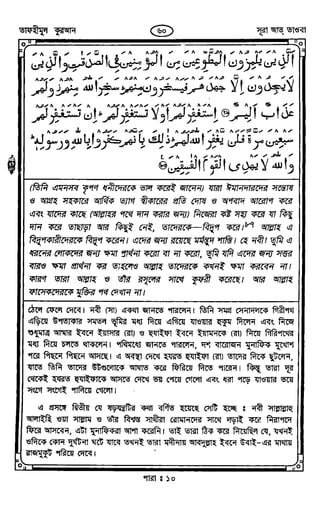 তাফহীমুল কুরআন
৬০
সূরা আত্ তাওবা
اَلَّذِيْنَ يَلْمِزُوْنَ الْمُطَّوِّعِيْنَ مِنَ الْمُؤْمِنِيْنَ فِى الصَّدَقٰتِ وَالَّذِيْنَ
لَا يَجِدُوْنَ اِلَّا جُهْدَهُمْ فَيَسْخَرُوْنَ مِنْهُمْ سَخِرَ اللهُ مِنْهُمْ وَلَهُمْ
عَذَابٌ اَلِيْمٌ اِسْتَغْفِرْ لَهُمْ اَوْ لَا تَسْتَغْفِرْ لَهُمْ اِنْ تَسْتَغْفِرْ لَهُمْ
سَبْعِيْنَ مَرَّةً فَلَنْ يَّغْفِرَ اللهُ لَهُمْ ذٰلِكَ بِاَنَّهُمْ كَفَرُوْا بِاللهِ وَرَسُوْلِهٖ
وَاللهُ لَا يَهْدِى الْقَوْمَ الْفٰسِقِيْنَ
(তিনি এমনসব কৃপণ ধনীদেরকে ভাল করেই জানেন) যারা ঈমানদারদের সন্তোষ
ও আগ্রহ সহকারে আর্থিক ত্যাগ স্বীকারের প্রতি দোষ ও অপবাদ আরোপ করে
এবং যাদের কাছে (আল্লাহর পথে দান করার জন্য) নিজেরা কষ্ট সহ্য করে যা কিছু
দান করে তাছাড়া আর কিছুই নেই, তাদেরকে—বিদ্রূপ করে। আল্লাহ এ
বিদ্রূপকারীদেরকে বিদ্রূপ করেন। এদের জন্য রয়েছে মর্মন্তুদ শাস্তি। হে নবী! তুমি এ
ধরনের লোকদের জন্য ক্ষমা প্রার্থনা করো বা না করো, তুমি যদি এদের জন্য সত্তর
বারও ক্ষমা প্রার্থনা কর তাহলেও আল্লাহ তাদেরকে কখনই ক্ষমা করবেন না।
কারণ তারা আল্লাহ ও তাঁর রসূলের সাথে কুফরী করেছে। আর আল্লাহ
ফাসেকদেরকে মুক্তির পথ দেখান না।
ঠেলে ফেলে দেবে। নবী (সা) একথা জানতে পারলেন। তিনি সমগ্র সেনাদলকে গিরীপথ
এড়িয়ে উপত্যকার সমতল ভূমির মধ্য দিয়ে এগিয়ে যাওয়ার হুকুম দিলেন এবং নিজে
শুধুমাত্র আম্মার ইবনে ইয়াসার (রা) ও হুযাইফা ইবনে ইয়ামানকে (রা) নিয়ে গিরিপথের
মধ্য দিয়ে চলতে থাকলেন। পথিমধ্যে জানতে পারলেন, দশ বারোজন মুনাফিক মুখোশ
পরে পিছনে পিছনে আসছে। এ অবস্থা দেখে হযরত হুযাইফা (রা) তাদের দিকে ছুটলেন,
যাতে তিনি তাদের উটগুলোকে আঘাত করে ফিরিয়ে দিতে পারেন। কিন্তু তারা দূর
থেকেই হযরত হুযাইফাকে আসতে দেখে ভয় পেয়ে গেলো এবং ধরা পড়ে যাওয়ার ভয়ে
সংগে সংগেই পালিয়ে গেলো।
এ প্রসঙ্গে দ্বিতীয় যে ষড়যন্ত্রটির কথা বর্ণিত হয়েছে সেটি হচ্ছে : নবী সাল্লাল্লাহু
আলাইহি ওয়া সাল্লাম ও তাঁর বিশ্বস্ত সাথীরা রোমানদের সাথে লড়াই করে নিরাপদে
ফিরে আসবেন, এটা মুনাফিকরা আশা করেনি। তাই তারা ঠিক করে নিয়েছিল যে, যখনই
ওদিকে কোন দুর্ঘটনা ঘটে যাবে তখনই তারা মদীনায় আবদুল্লাহ ইবনে উবাই-এর মাথায়
রাজমুকুট পরিয়ে দেবে।
পারা : ১০